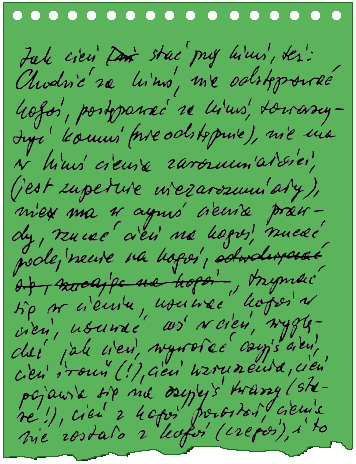 Jak cień stać przy kimś, też:
Chodzić za kimś, nie odstępować
kogoś, postępować za kimś, towarzy-
szyć komuś (nieodstępnie), nie ma
w kimś cienia zarozumiałości,
(jest zupełnie niezarozumiały),
nie ma w czymś cienia praw-
dy, rzucać cień na kogoś, rzucać
podejrzenie na kogoś, odwoływać
się, rzucając na kogoś, trzymać
się w cieniu, usuwać kogoś w
cień, usuwać coś w cień, wyglą-
dać jak cień, wywołać czyjś cień,
cień (!), cień wzruszenia, cień
pojawia się na czyjejś twarzy (sta-
re!), cień z kogoś pozostał, cienia
nie zostało z kogoś (czegoś), i to